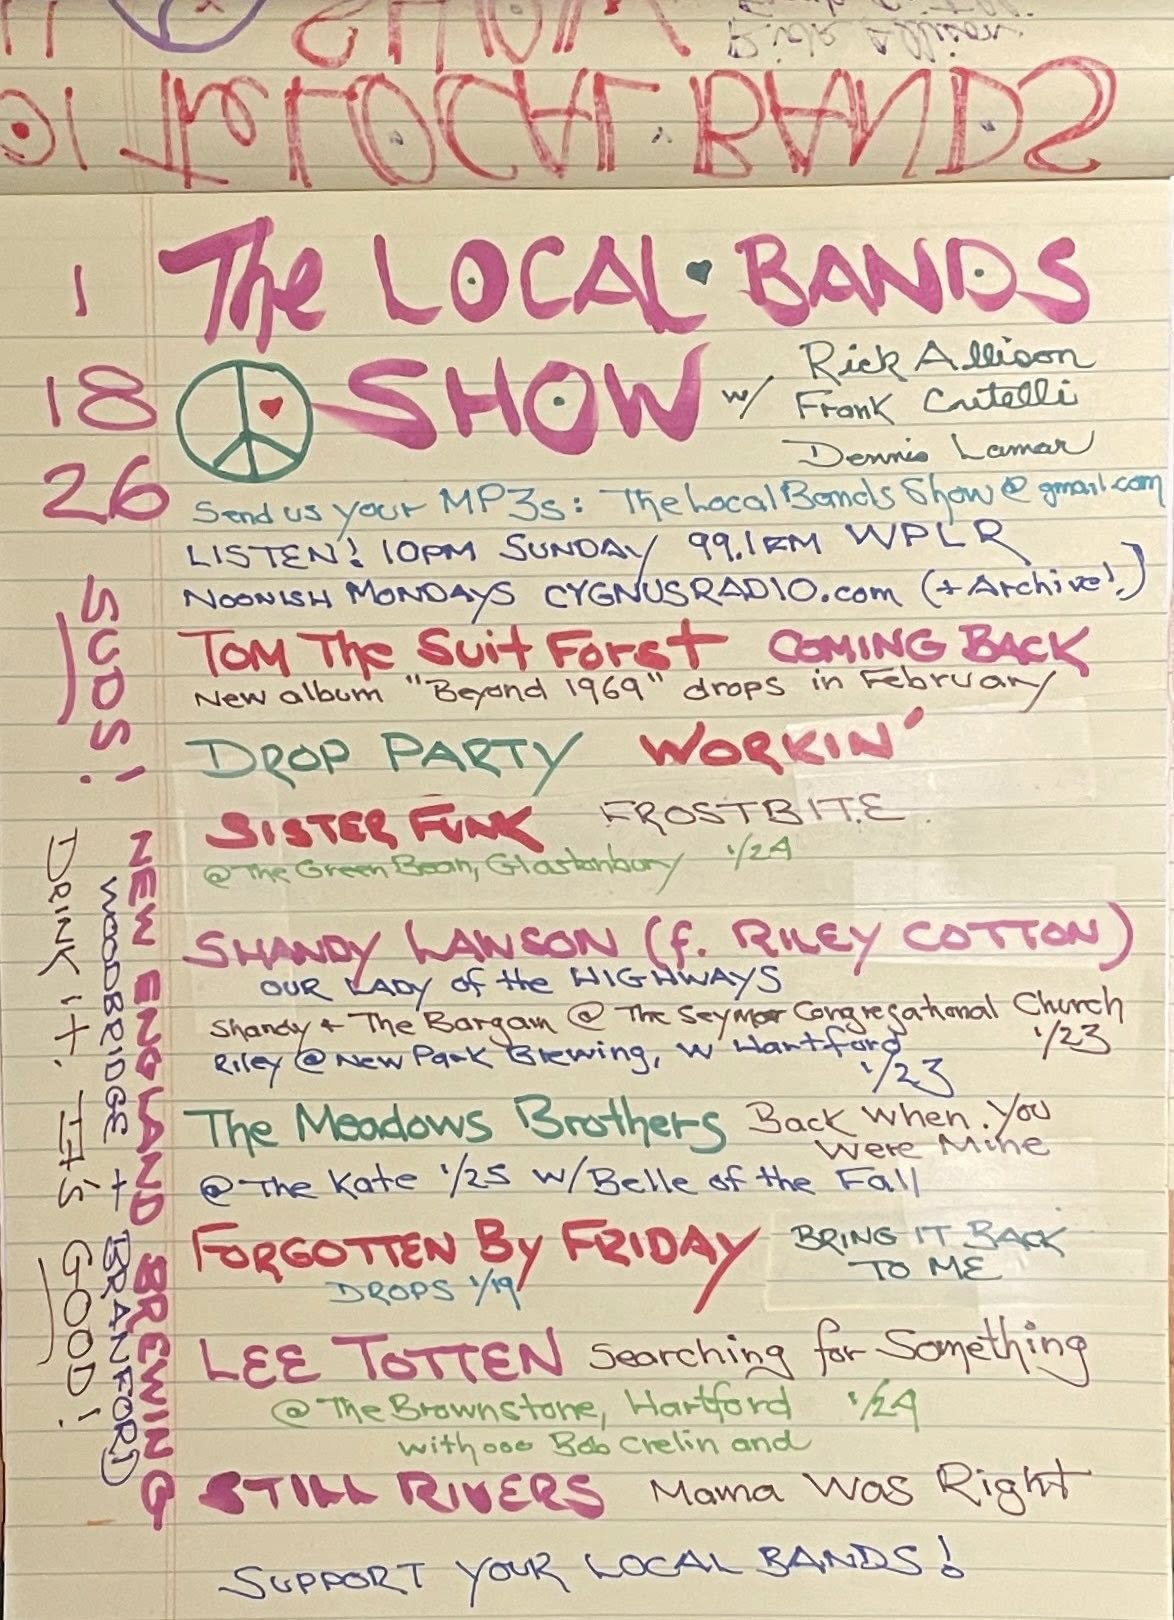 LOCAL BANDS
1
18
26
The LOCAL BANDS
SHOW w/ Rick Allison
Frank Critelli
Dennis Lamar
Send us your MP3s: TheLocalBandsShow@gmail.com
LISTEN! 10PM SUNDAY 99.1FM WPLR
NOONISH MONDAYS CYGNUSRADIO.com (+ Archive!)
Tom The Suit Forst COMING BACK
New album "Beyond 1969" drops in February
DROP PARTY WORKIN'
SISTER FUNK FROSTBITE
@ The Green Bean, Glastonbury 1/24
SHANDY LAWSON (f. RILEY COTTON)
OUR LADY of the HIGHWAYS
Shandy + The Bargain @ The Seymor Congregational Church
1/23
Riley @ New Park Brewing, W Hartford
1/23
The Meadows Brothers Back When You
Were Mine
@ The Kate 1/25 w/ Belle of the Fall
FORGOTTEN By FRIDAY BRING IT BACK
TO ME
DROPS 1/19
LEE TOTTEN Searching for Something
@ The Brownstone, Hartford 1/24
with ooo Bob Crelin and
STILL RIVERS Mama Was Right
SUPPORT YOUR LOCAL BANDS!
SUDS!
NEW ENGLAND BREWING
WOODBRIDGE + BRANFORD
DRINK IT. IT'S GOOD!